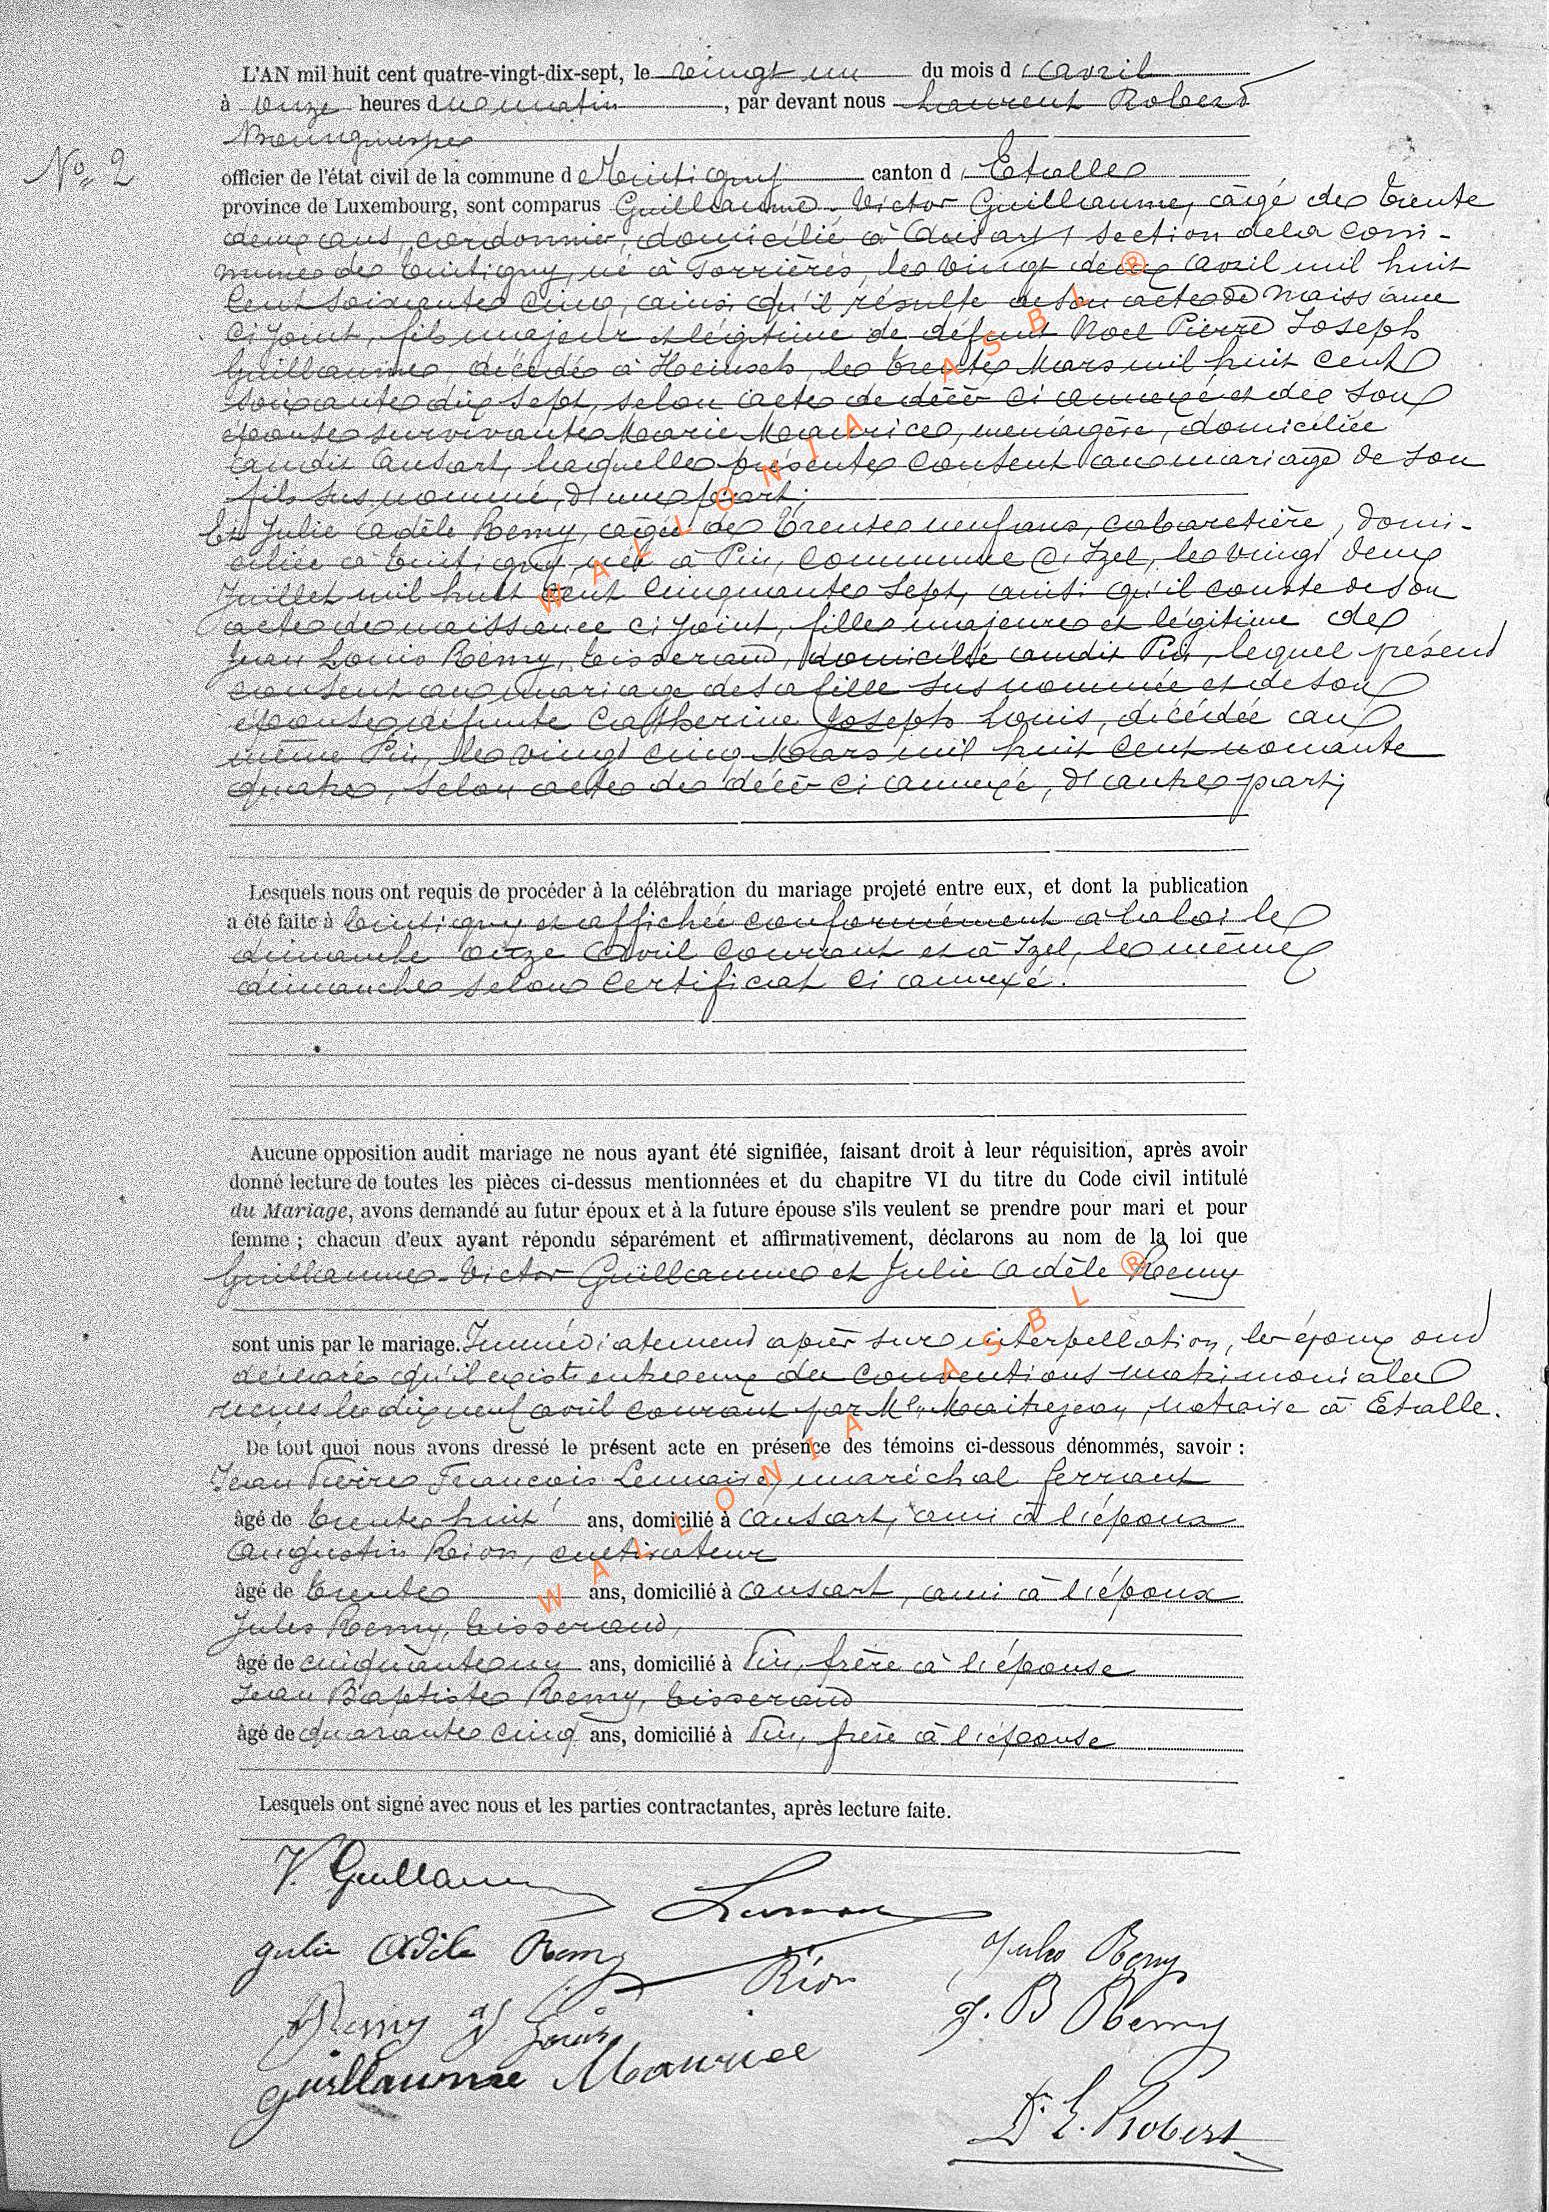 L'AN mil huit cent quatre-vingt-dix-sept, le vingt un du mois d'avril
à onze heures du matin, par devant nous Laurent Robert
Bourgmestre
No 2
officier de l'état civil de la commune de Tintigny canton d'Etalle
province de Luxembourg, sont comparus Guillaume-Victor Guillaume, âgé de trente
deux ans, cordonnier, domicilié à Ansart, section de la com-
mune de Tintigny, né à Sorrières, le vingt deux avril mil huit
cent soixante cinq, ainsi qu'il résulte de son acte de naissance
ci joint, fils majeur et légitime de défunt Noel Pierre Joseph
Guillaume, décédé à Heinsch, le trente Mars mil huit cent
soixante dix sept, selon acte de décès ci annexé et de son
épouse survivante Marie Maurice, ménagère, domiciliée
audit Ansart, laquelle présente consent au mariage de son
fils sus nommé, d'une part;
Et Julie Adèle Remy, âgée de trente neuf ans, cabaretière, domi-
ciliée à Tintigny, née à Pin, commune d'Izel, le vingt deux
Juillet mil huit cent cinquante sept, ainsi qu'il conste de son
acte de naissance ci joint, fille majeure et légitime de
Jean Louis Remy, tisserand, domicilié audit Pin, lequel présent
consent au mariage de sa fille sus nommée et de son
épouse défunte Catherine Joseph Louis, décédée au
même Pin, le vingt cinq Mars mil huit cent nonante
quatre, selon acte de décès ci annexé, d'autre part;
Lesquels nous ont requis de procéder à la célébration du mariage projeté entre eux, et dont la publication
a été faite à Tintigny et affichée conformément à la loi le
dimanche onze avril courant et à Izel, le même
dimanche selon certificat ci annexé.
Aucune opposition audit mariage ne nous ayant été signifiée, faisant droit à leur réquisition, après avoir
donné lecture de toutes les pièces ci-dessus mentionnées et du chapitre VI du titre du Code civil intitulé
du Mariage, avons demandé au futur époux et à la future épouse s'ils veulent se prendre pour mari et pour
femme ; chacun d'eux ayant répondu séparément et affirmativement, déclarons au nom de la loi que
Guillaume-Victor Guillaume et Julie Adèle Remy
sont unis par le mariage. Immédiatement après sur interpellation, les époux ont
déclaré qu'il existe entre eux des conventions matrimoniales
reçues le dix neuf avril courant par Me Maitrejean, notaire à Etalle.
De tout quoi nous avons dressé le présent acte en présence des témoins ci-dessous dénommés, savoir :
Jean Pierre François Lemaise, maréchal ferrant
âgé de trente huit ans, domicilié à Ansart, ami à l'époux
Augustin Rion, cultivateur
âgé de trente ans, domicilié à Ansart, ami à l'époux
Jules Remy, tisserand,
âgé de cinquante un ans, domicilié à Pin, frère à l'épouse
Jean Baptiste Remy, tisserand
âgé de quarante cinq ans, domicilié à Pin, frère à l'épouse
Lesquels ont signé avec nous et les parties contractantes, après lecture faite.
V. Guillaume
Julie Adèle Remy
Rion
Jules Remy
Remy J Louis
J. B Remy
Guillaume Maurice
Dr L. Robert
WALLONIA ASBL ®
WALLONIA ASBL ®